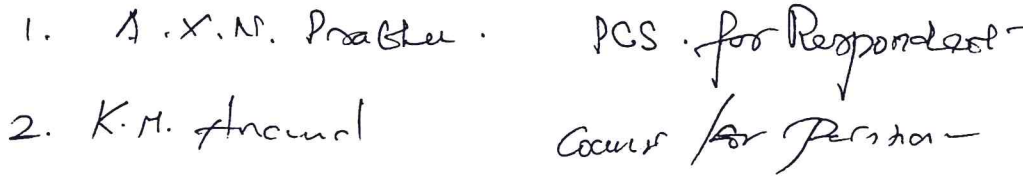 1. A.X.N. Prabhu. PCS. for Respondent
2. K.M. Anand Counsel for Petitioner